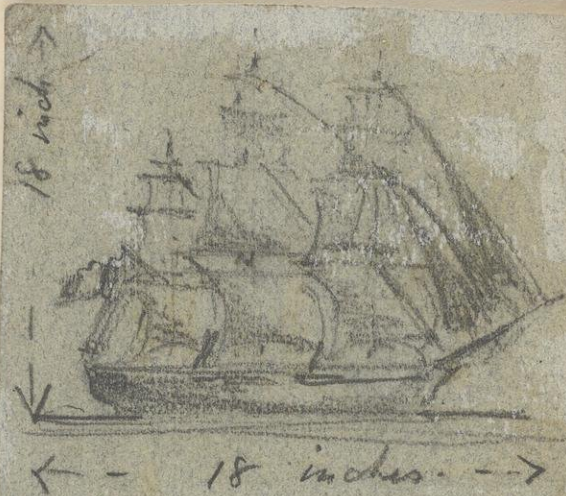 18 inch
18 inches.